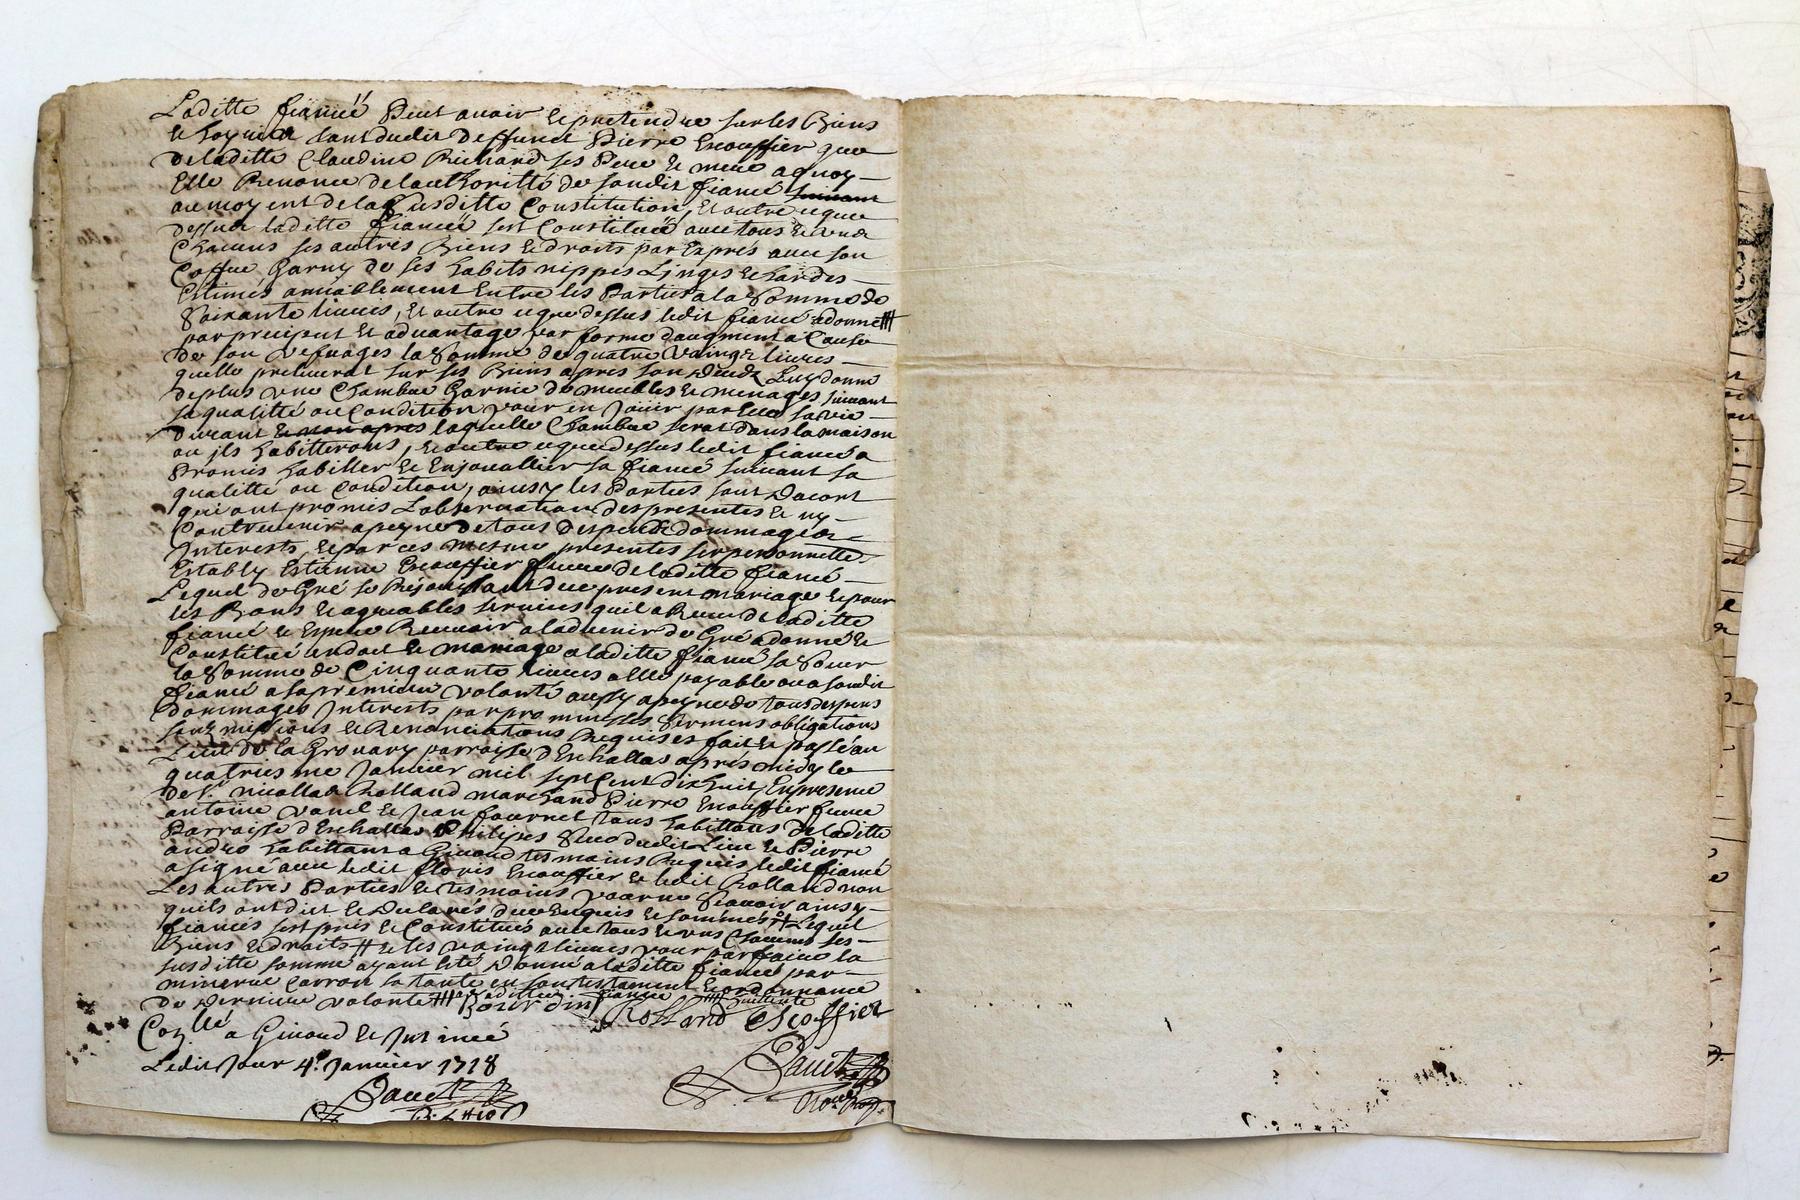 Laditte fiancéé Peut avoir et pretendre sur les Biens
et hoyries tant dudit deffunct Pierre Escouffier que
de laditte Claudine Richard ses Pere et mere a quoy
Elle Renonce de lauthoritté de sondit fiancé suivant
au moyent de la susditte Constitution, Et outre ce que
dessus laditte fiancéé sest Constituéé avec tous et uns
Chacuns ses autres Biens et droits par Exprés avec son
Coffre Garny de ses habits nippes Linges et hardes
Estimés amiablement Entre les Parties a la Somme de
Soixante livres, Et outre ce que dessus ledit fiancé a donné
par precipent et advantage par forme daugment a Cause
de son Vefvages la Somme de quatre vaingt livres
quelle prelevera sur ses Biens apres son deceds Luy donne
de plus une Chambre Garnie de meubles et menages suivant
sa qualitté ou Condition pour en Jouir par Elle sa vie
durant et non apres laquelle Chambre serat dans la maison
ou ils habitterons, et outre ce que dessus ledit fiancé a
Promis habiller et Enjouallier sa fiancé suivant sa
qualitté ou Condition, ainsy les Parties sont dacort
qui ont promis Lobservation des presentes et ny
Contrevenir a peyne de tous despens dommages
Interests, et par ces mesme presentes ser personnelle
Estably Estienne Escouffier frere de laditte fiancé
Lequel de Gré se Rejouissant du present mariage et pour
les Bons et agreables services quil a Receu de laditte
fiancé et Espere Recevoir a ladvenir de Gré a donné et
Constitué en dot et mariage a laditte fiancé sa Soeur
la Somme de Cinquante livres a elle payable ou a sondit
fiancé a sa premiere volonté aussy a peyne de tous despens
dommages Interests par promesses Sermens obligations
soubmissions et Renonciations Requises fait et passé au
Lieu de la Gronary parroisse d'Eschallas aprés midy le
quatriesme Janvier mil sept Cent dixhuit, En presence
de Sr. nicollas Rolland marchand Pierre Escouffier frere
antoine vanel et Jean fournel tous habittans de laditte
Parroisse d'Eschallas Philipes dudit Lieu et Pierre
andro habittant a Givord tesmoins Requis ledit fiancé
a signé avec ledit floris Escouffier et ledit Rolland non
Les autres Parties et tesmoins pour ne Scavoir ainsy
quils ont dit et declarés de ce Enquis et sommés Lequel
fiancés sest pris et Constitués avec tous et uns Chacuns ses
Biens et droits et les vaingt livres pour parfaire la
susditte somme ayant Eté donné a laditte fiancé par
minerve Carron sa tante en son testament et ordonnance
de derniere volonté
Bourdin Rolland Escoffier
Con.llé a Givord et Int
Ledit Jour 4e. Janvier 1718